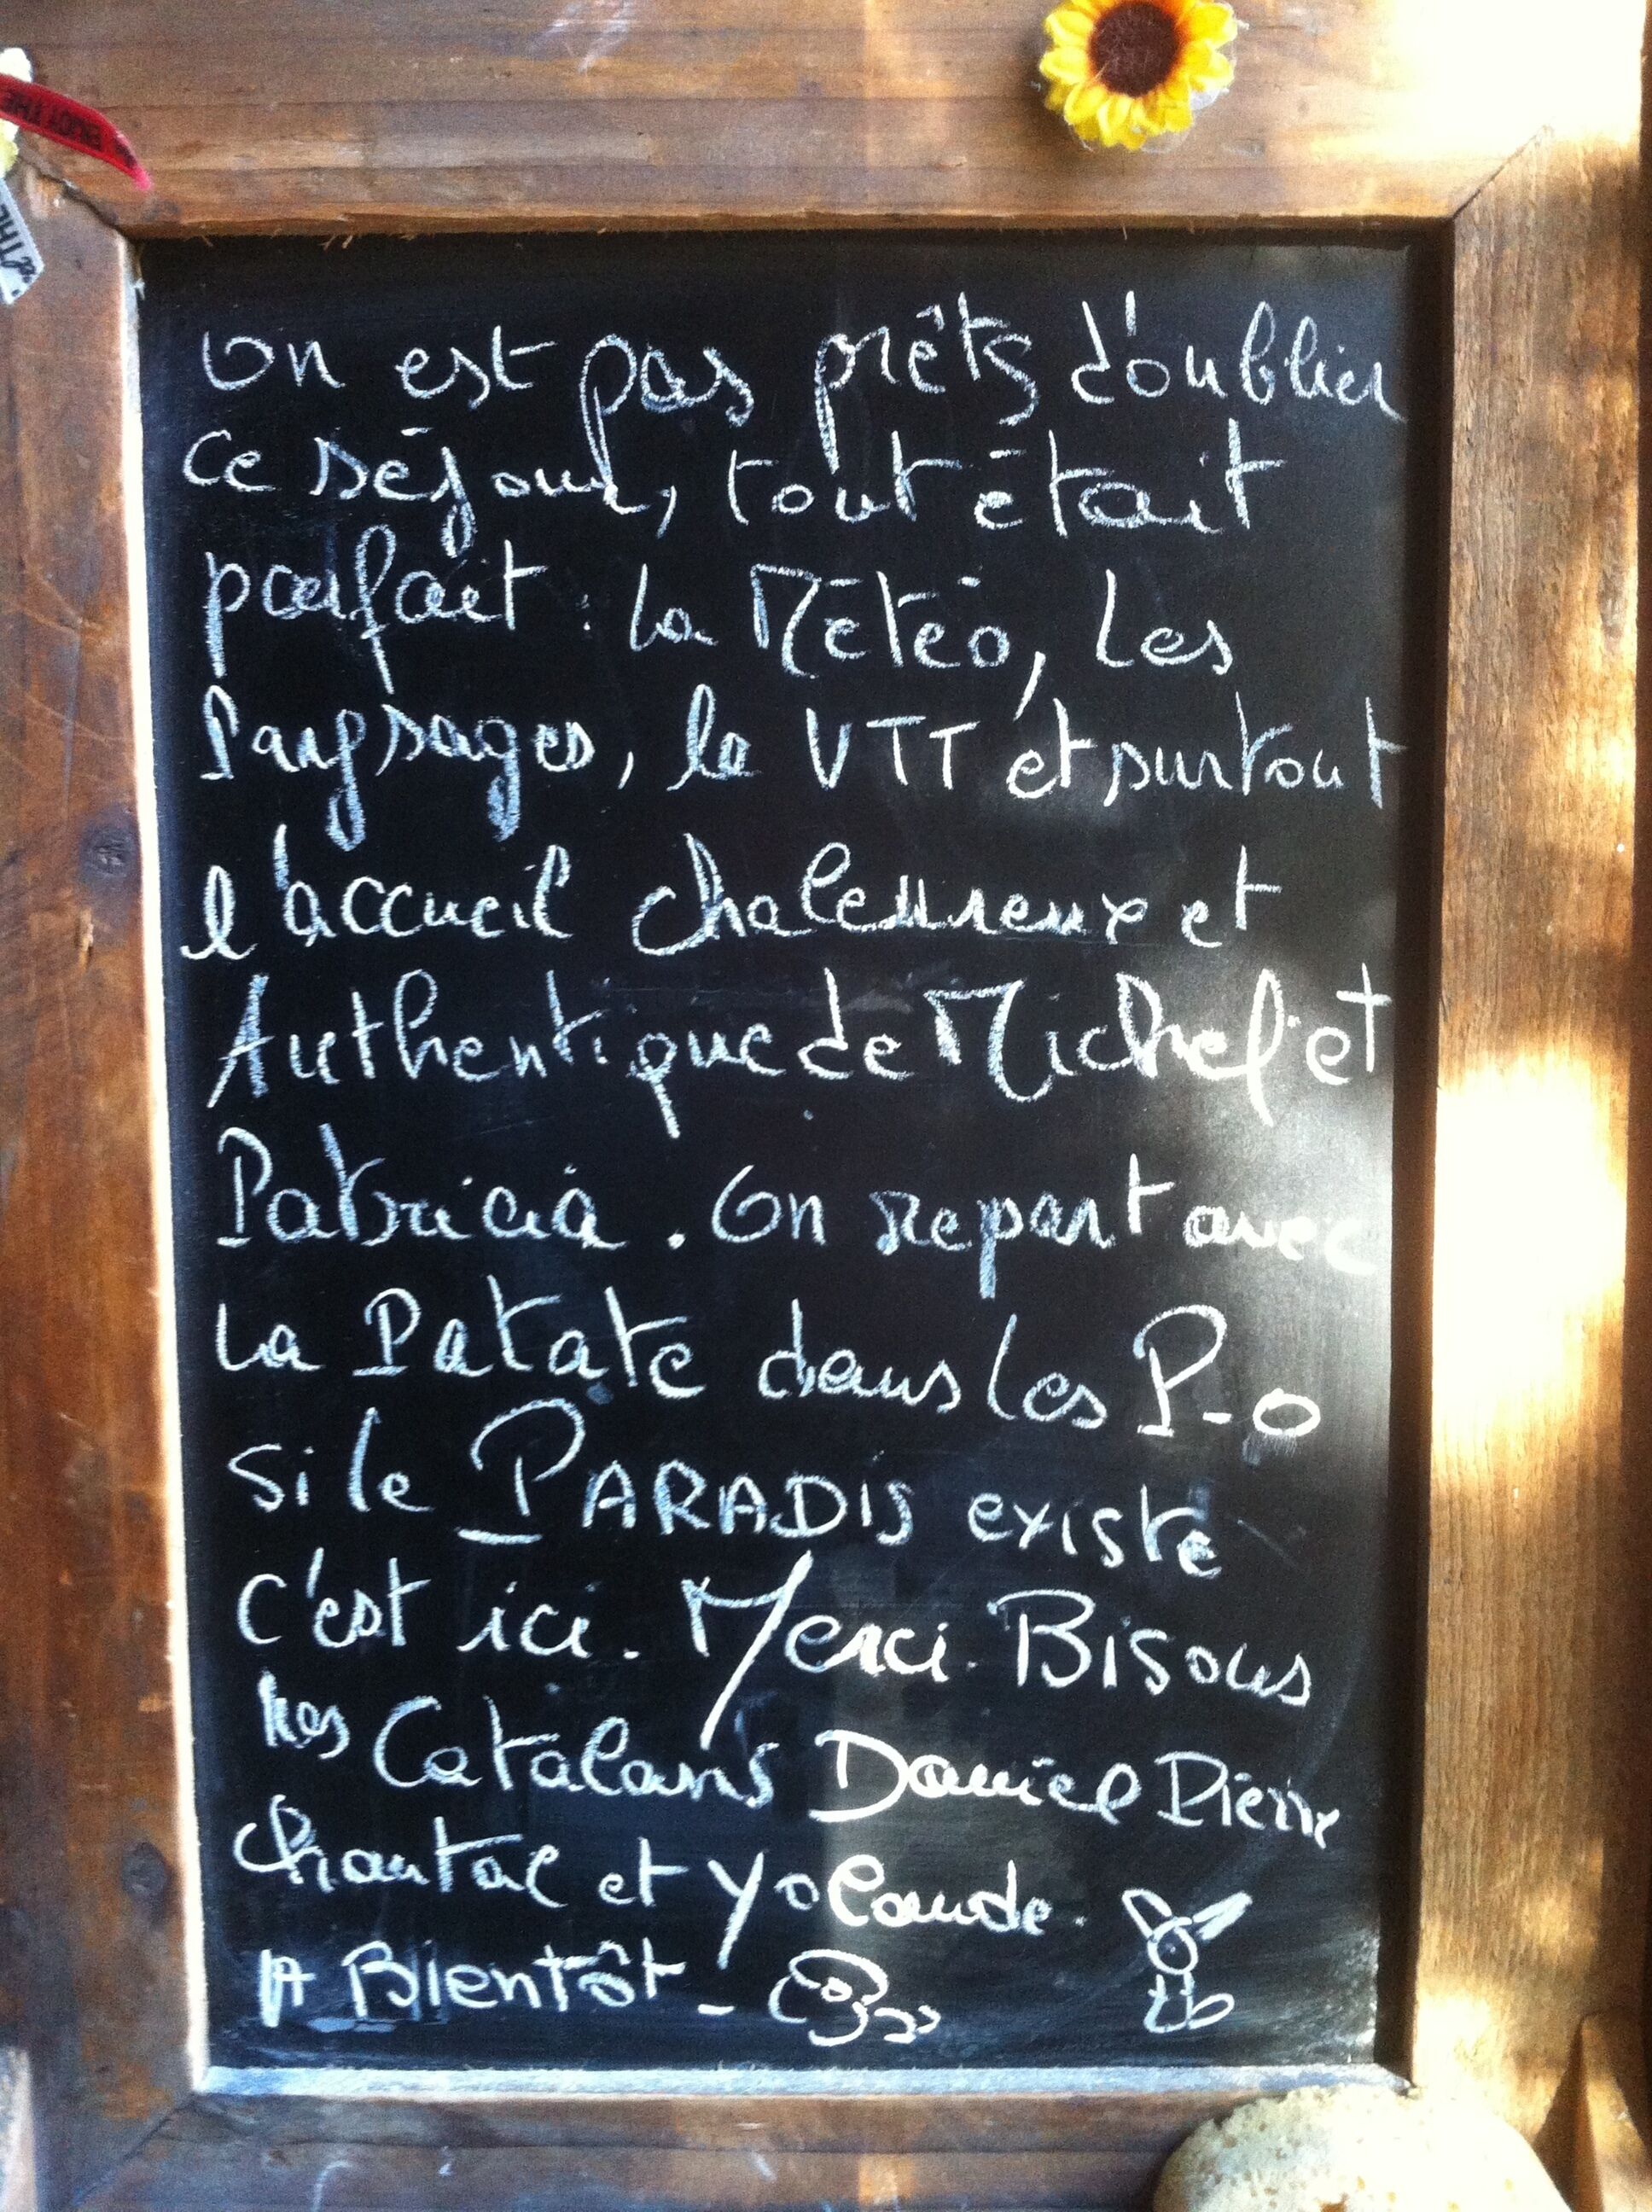 ENJOY THE
THE
On est pas prêts d'oublier
ce séjour, tout était
parfait : la Météo, les
Paysages, le VTT et surtout
l'accueil chaleureux et
Authentique de Michel et
Patricia. On repart avec
la Patate dans les P-O
si le PARADIS existe
c'est ici. Merci. Bisous
Les Catalans Daniel Pierre
Chantal et Yolande.
A Bientôt -